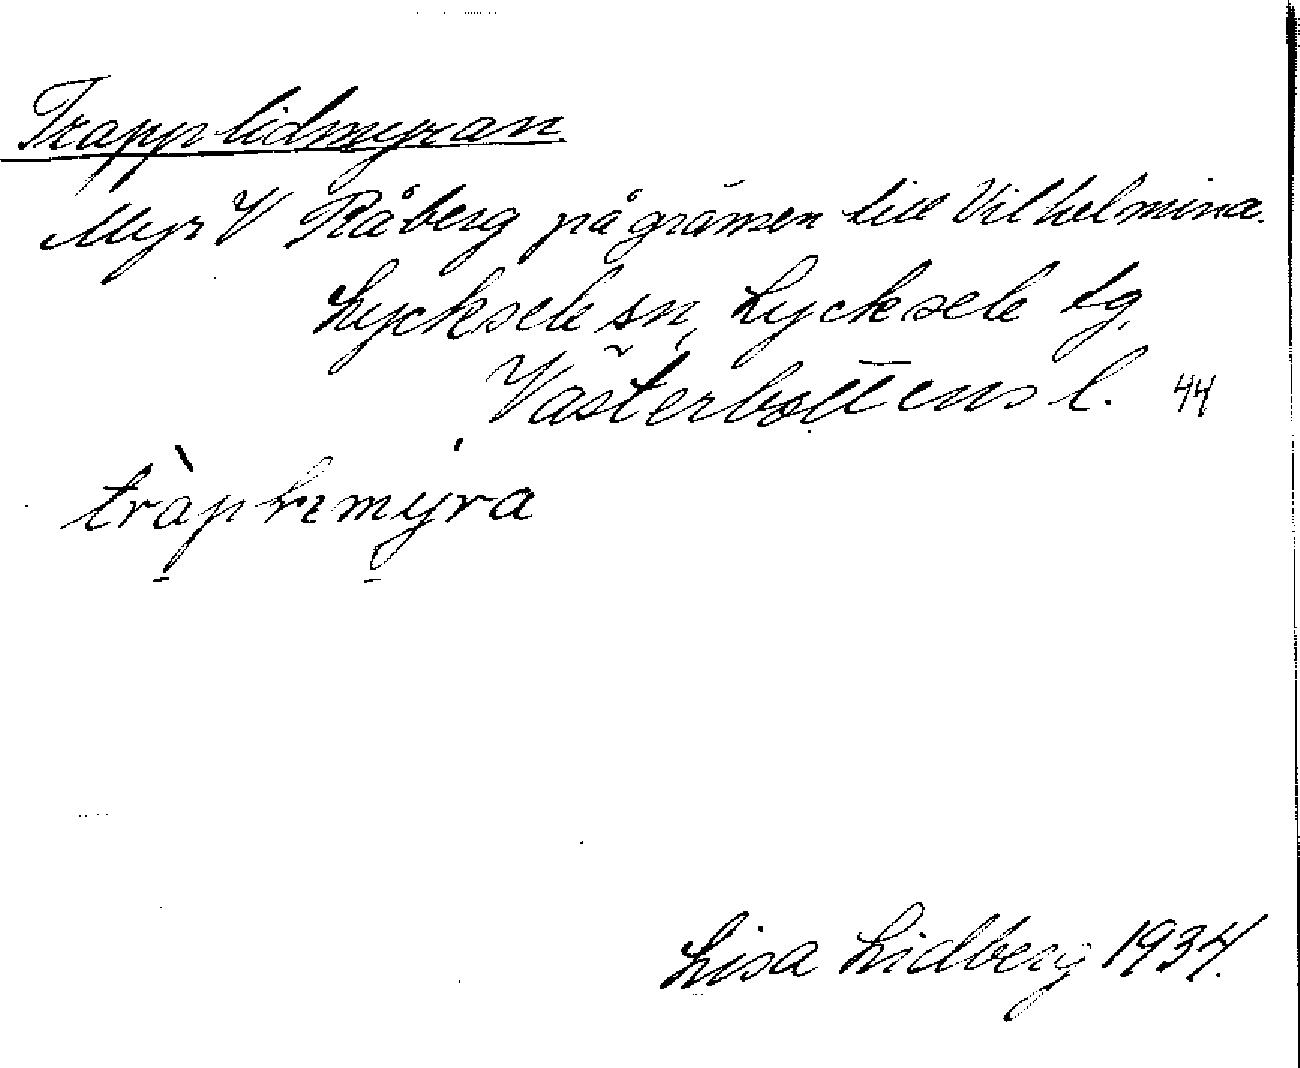 Trapplidmyran.
Myr V Råberg på gränsen till Vilhelmina.
Lycksele sn, Lycksele tg.
Västerbottens l. 44
Lisa Lidberg 1934.